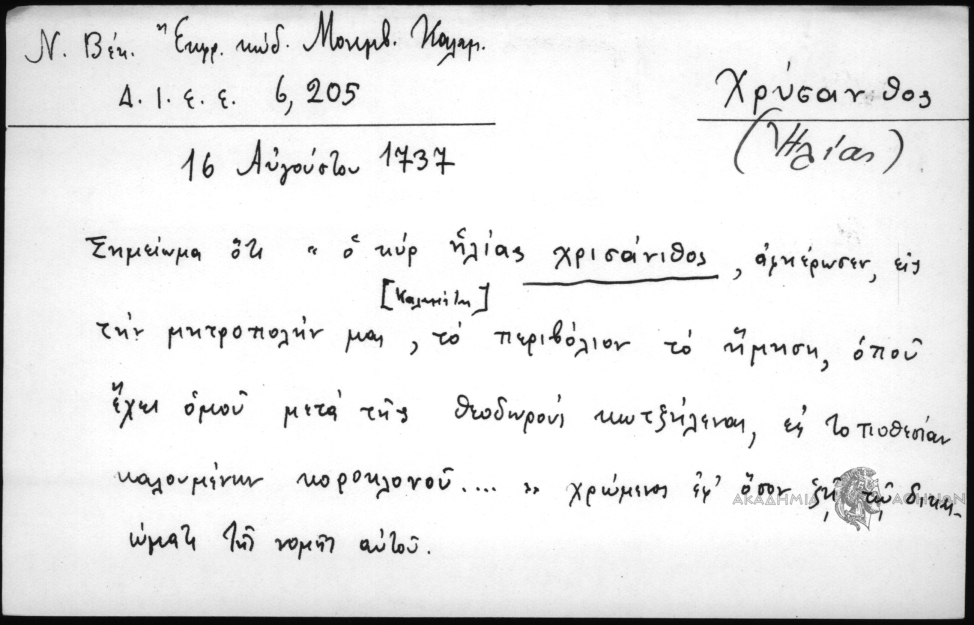 Ν. Βέη. Ἐκφρ. κώδ. Μονεμβ. Καλαμ.
Δ. Ι. Ε. Ε. 6, 205
Χρύσανθος
(Ἠλίας)
16 Αὐγούστου 1737
Σημείωμα ὅτι " ὁ κύρ ἠλίας χρισάνιθος, ἀφηέρωσεν, εἰς
[Καλαμάτα]
τήν μητροπολήν μας, τό περιβόλιον τό ἥμηση, ὁπού
ἔχει ὁμοῦ μετά τῆς θεοδωρούς κωτζηλένας, εἰς τοποθεσίαν
καλουμένην καροκλονοῦ.... " χρώμενος ἐφ' ὅσον ζῇ τῷ δικαι-
ώματι τῆς νομῆς αὐτοῦ.
ΑΚΑΔΗΜΙΑ ΑΘΗΝΩΝ